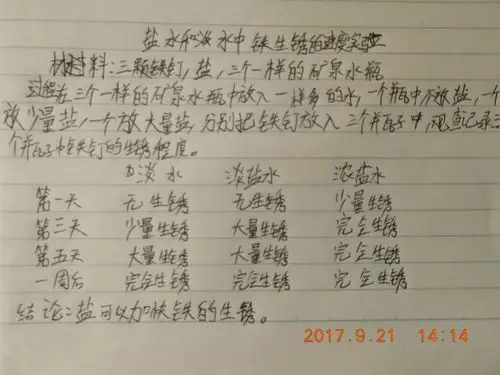 盐水和淡水中铁生锈的速度实验
材料:三颗铁钉,盐,三个一样的矿泉水瓶
过程:在三个一样的矿泉水瓶中放入一样多的水,一个瓶中不放盐,一个
放少量盐,一个放大量盐,分别把铁钉放入三个瓶子中,观察记录三
个瓶子中铁钉的生锈程度。
淡水 淡盐水 浓盐水
第一天 无生锈 无生锈 少量生锈
第三天 少量生锈 大量生锈 完全生锈
第五天 大量生锈 大量生锈 完全生锈
一周后 完全生锈 完全生锈 完全生锈
结论:盐可以加快铁的生锈。
2017.9.21 14:14